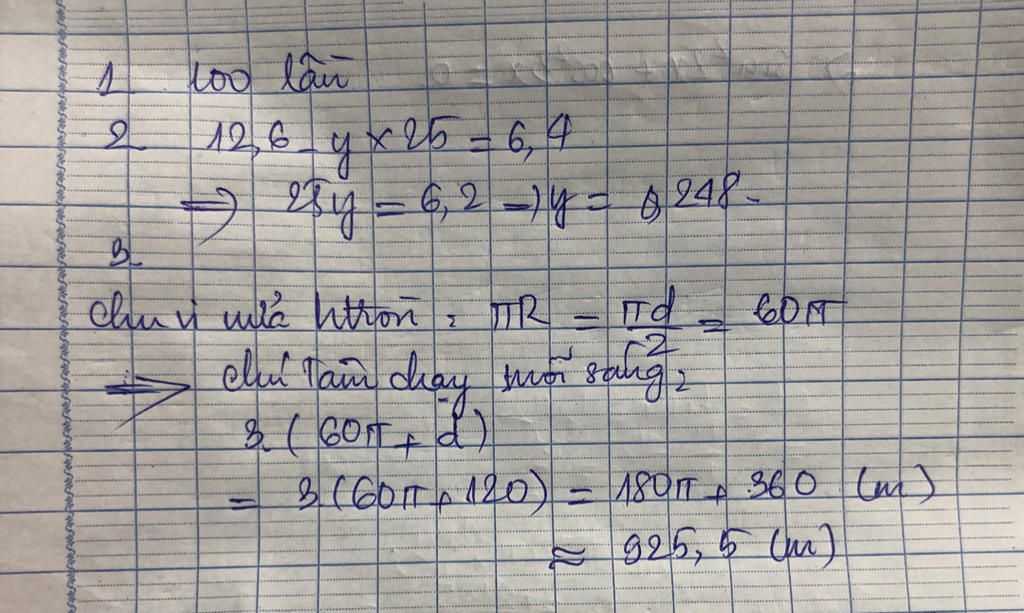 1 100 lần
2 12,6 - y × 25 = 6,4
=> 25y = 6,2 -> y = 0,248.
3
Chu vi nửa htròn : πR = πd/2 = 60π
=> Chú Tâm chạy mỗi sáng :
3 (60π + d)
= 3(60π + 120) = 180π + 360 (m)
≈ 925,5 (m)